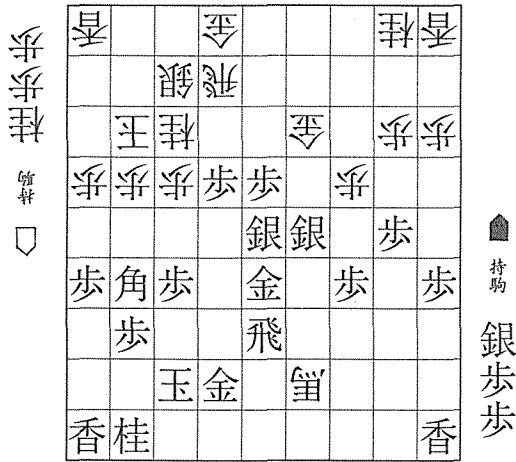 歩歩桂
持駒
香金桂香
銀飛
王桂金歩歩
歩歩歩歩歩歩
銀銀歩
歩角歩金歩歩
歩飛
玉金馬
香桂香
持駒
銀歩歩